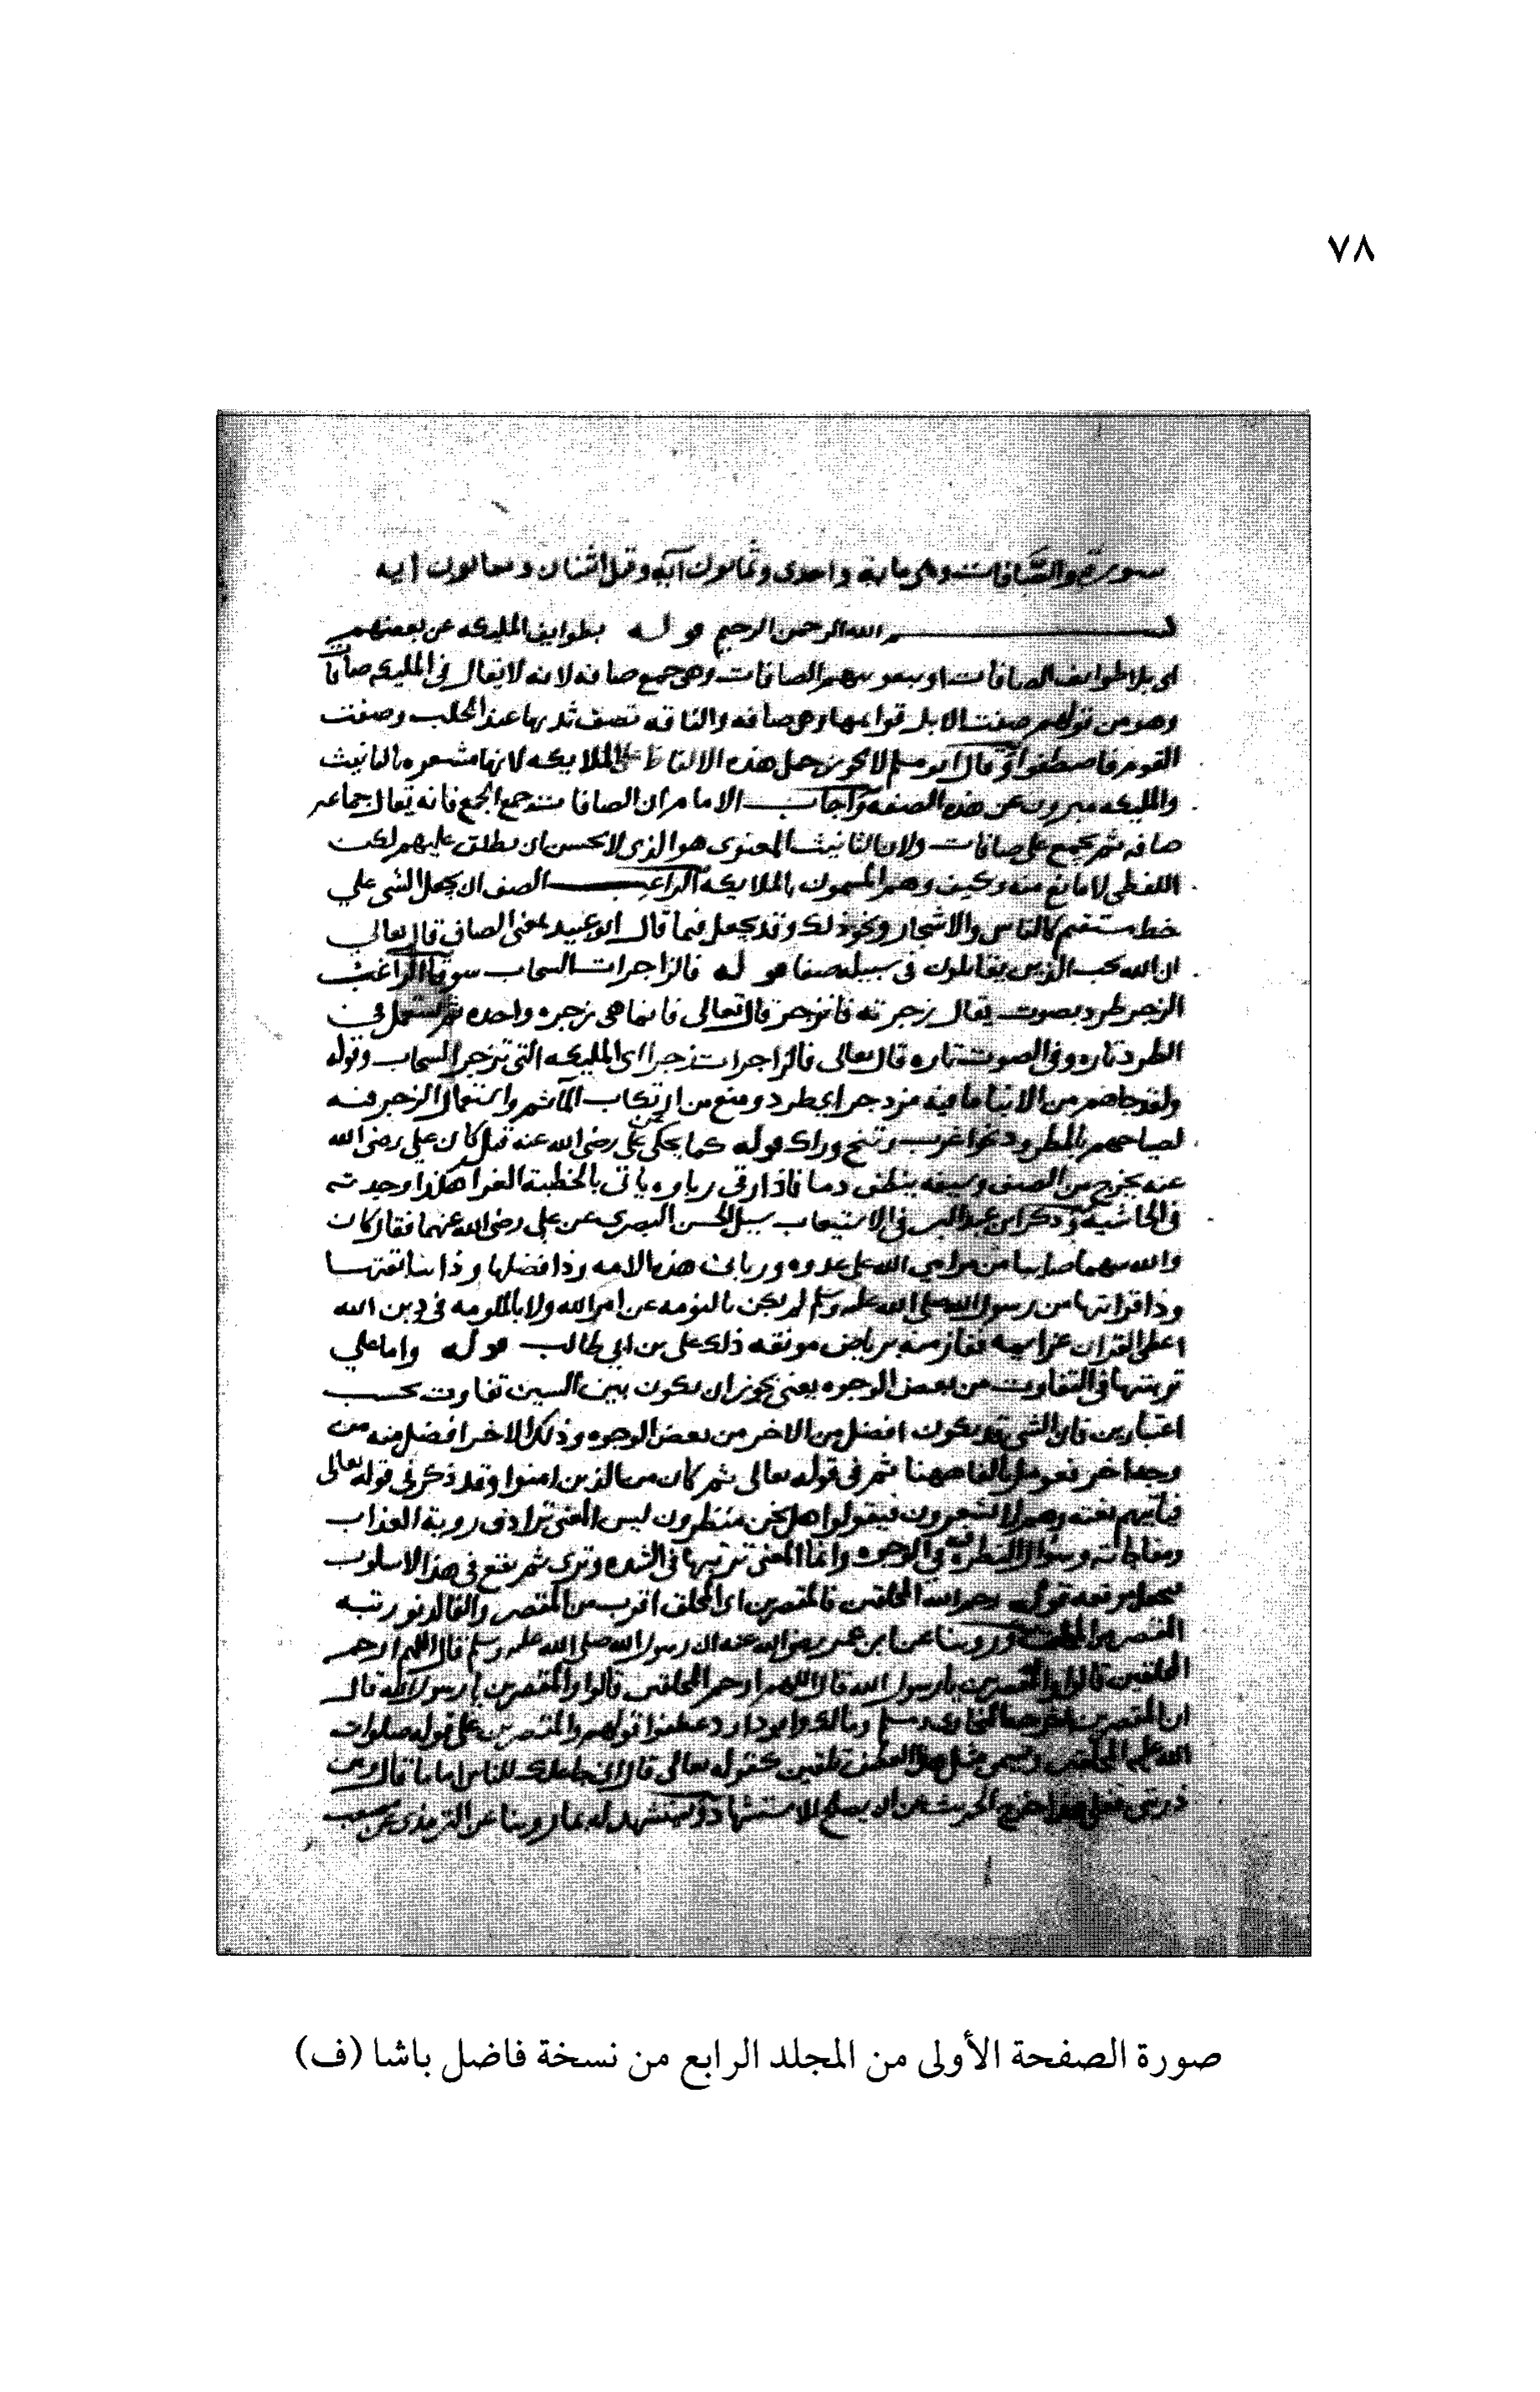 ٧٨
سورة والصافات وهي مايه واحدى وثمانون آية وقيل اثنتان وثمانون ايه
بسم الله الرحمن الرحيم قوله بطوايف المليكه عن بعضهم
اى بلا طوايف الصافات او بنفوسهم الصافات وهى جمع صافه لانه لا يقال فى المليكه صافا
وهو من قولهم صفت الابل قوايمها وهى صافه والناقه تصف ثديها عند الحلب وصفت
القوم فاصطفوا وقال ابو مسلم لا يجوز حمل هذه الالفاظ على الملايكه لانها مشعره بالتانيث
والمليكه مبرون عن هذه الصفه واجاب الامام ان الصافات جمع الجمع فانه يقال جماعه
صافه ثم يجمع على صافات ولان التانيث المعنوى هو الذى لا يحسن ان يطلق عليهم لكن
اللفظى لا مانع منه وكيف وهم المسمون بالملايكه الراغب الصف ان يجعل الشى على
خط مستقيم كالناس والاشجار ونحو ذلك وقد يجعل فيما قال ابو عبيد بمعنى الصاف قال تعالى
ان الله يحب الذين يقاتلون فى سبيله صفا قوله فالزاجرات السحاب سوقا الراغب
الزجر طرد بصوت يقال زجرته فانزجر قال تعالى فانما هى زجره واحده ثم يستعمل فى
الطرد تاره وفى الصوت تاره قال تعالى فالزاجرات زجرا اى المليكه التى تزجر السحاب وقوله
ولقد جاهم من الانبا ما فيه مزدجر اى طرد ومنع من ارتكاب المآثم واستعمال الزجر فيه
لصياحهم بالمطرود نحو اغرب وتنح وراك قوله كما يحكى عن على رضى الله عنه قيل كان على رضى الله
عنه يخرج من الصف وسيفه ينطف دما فاذا رقى رباوه ياتى بالخطبة الغرا هكذا وجدته
فى الحاشيه وذكر ابن عبد البر فى الاستيعاب سيل الحسن البصرى عن على رضى الله عنهما فقال كان
والله سهما صايبا من مرامى الله على عدوه وربانى هذه الامه وذا فضلها وذا سابقتها
وذا قرابتها من رسول الله صلى الله عليه وسلم لم يكن بالنومه عن امر الله ولا بالملومه فى دين الله
اعطى القران عزايمه ففاز منه برياض مونقه ذلك على بن ابى طالب قوله واما على
تربيتها فى التفاوت من بعض الوجوه يعنى يجوز ان يكون بين السين تفاوت بحسب
اعتبارين فان الشى قد يكون افضل من الاخر من بعض الوجوه وذلك الاخر افضل منه من
وجه اخر ههنا ثم فى قوله تعالى ثم كان من الذين امنوا وقد ذكر فى قوله تعالى
فياتيهم بغته وهم لا يشعرون فيقولوا هل نحن منظرون ليس المعنى ترادف روية العذاب
ومفاجاته وسوال النظره فيه فى الوجود وانما المعنى ترتيبها فى الشده وترى ثم يقع فى هذا الاسلوب
قوله رحم الله المحلقين فالمقصرين اى المحلق اقرب من المقصر
وروينا عن ابن عمر رضى الله عنه ان رسول الله صلى الله عليه وسلم قال اللهم ارحم
المحلقين قالوا والمقصرين يا رسول الله قال اللهم ارحم المحلقين قالوا والمقصرين يا رسول الله قال
البخارى ومسلم ومالك وابو داود عطفوا قولهم والمقصرين على قوله صلوات
الله عليه المحلقين كقوله تعالى قال انى جاعلك للناس اماما قال ومن
ذريتى فعلى هذا خرج الحديث عن ان يصلح للاستشهاد ويستشهد له بما روينا عن الترمذى عن
صورة الصفحة الأولى من المجلد الرابع من نسخة فاضل باشا (ف)